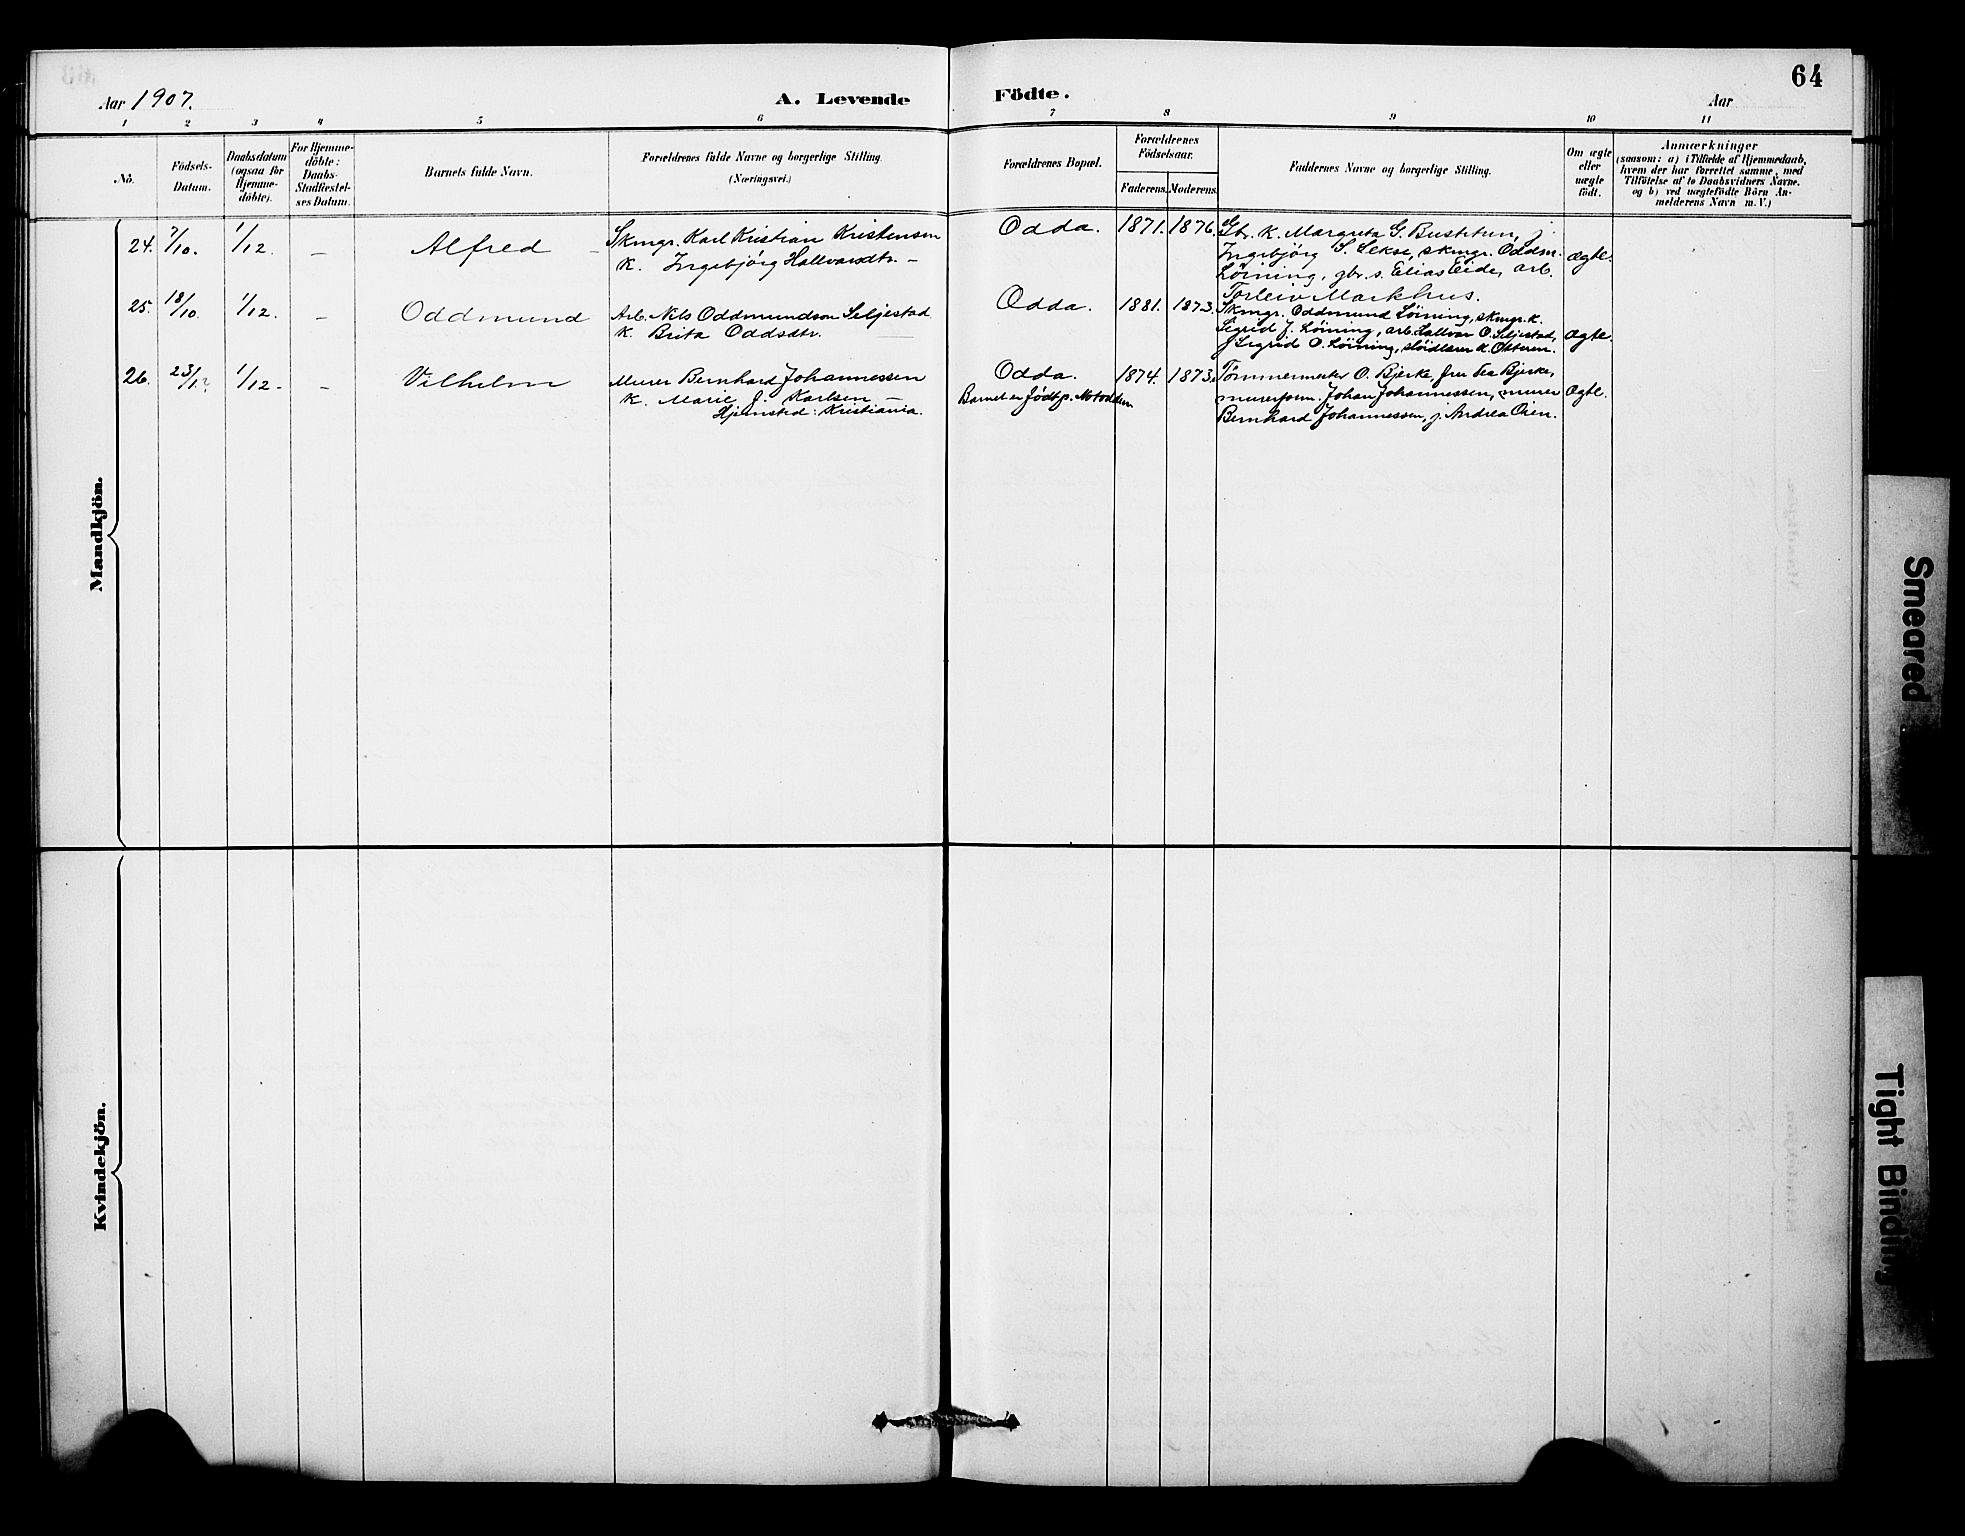 64
Aar 1907.
A. Levende Födte.
Aar
1 2 3 4 5 6 7 8 9 10 11
No.
Födsels-
Datum.
Daabsdatum
(ogsaa for
Hjemme-
döbte).
For Hjemme-
döbte:
Daabs-
Stadfæstel-
ses Datum.
Barnets fulde Navn.
Forældrenes fulde Navne og borgerlige Stilling.
(Næringsvei.)
Forældrenes Bopæl.
Forældrenes
Födselsaar.
Faderens. Moderens.
Faddernes Navne og borgerlige Stilling.
Om ægte
eller
uægte
födt.
Anmærkninger
(saasom: a) i Tilfælde af Hjemmedaab,
hvem der har forrettet samme, med
Tilföielse af to Daabsvidners Navne.
og b) ved uægtefödte Börn An-
melderens Navn m. V.)
Mandkjön.
24. 7/10. 1/12. – Alfred –
Skmgr. Karl Kristian Kristensen
K. Ingebjörg Hallvarsdtr. –
Odda. 1871. 1876.
Gbr. K. Margreta G. Bustetun, j
Ingebjörg S. Lekse, skmgr. Oddm.
Löining, gbr. s. Elias Eide, arb.
Torleiv Markhus.
Ægte.
25. 18/10. 1/12. – Oddmund
Arb. Nils Oddmundson Seljestad
K. Brita Oddsdtr.
Odda. 1881. 1873.
Skmgr. Oddmund Löining, skmgr. k.
Sigrid J. Löining, arb. Hallvor O. Seljestad,
j Sigrid O. Löining, slöidlærer K. Otteren.
Ægte.
26. 23/1? 1/12. – Vilhelm
Murer Bernhard Johannessen
K. Marie J. Karlsen –
Hjemsted: Kristiania.
Odda. 1874. 1873.
Barnet er födt p. Notodden
Tömmermester O. Bjerke, fru Pea Bjerke,
murerform. Johan Johannessen, murer
Bernhard Johannessen, j. Andrea Oien.
Ægte.
Kvindekjön.
Smeared
Tight Binding